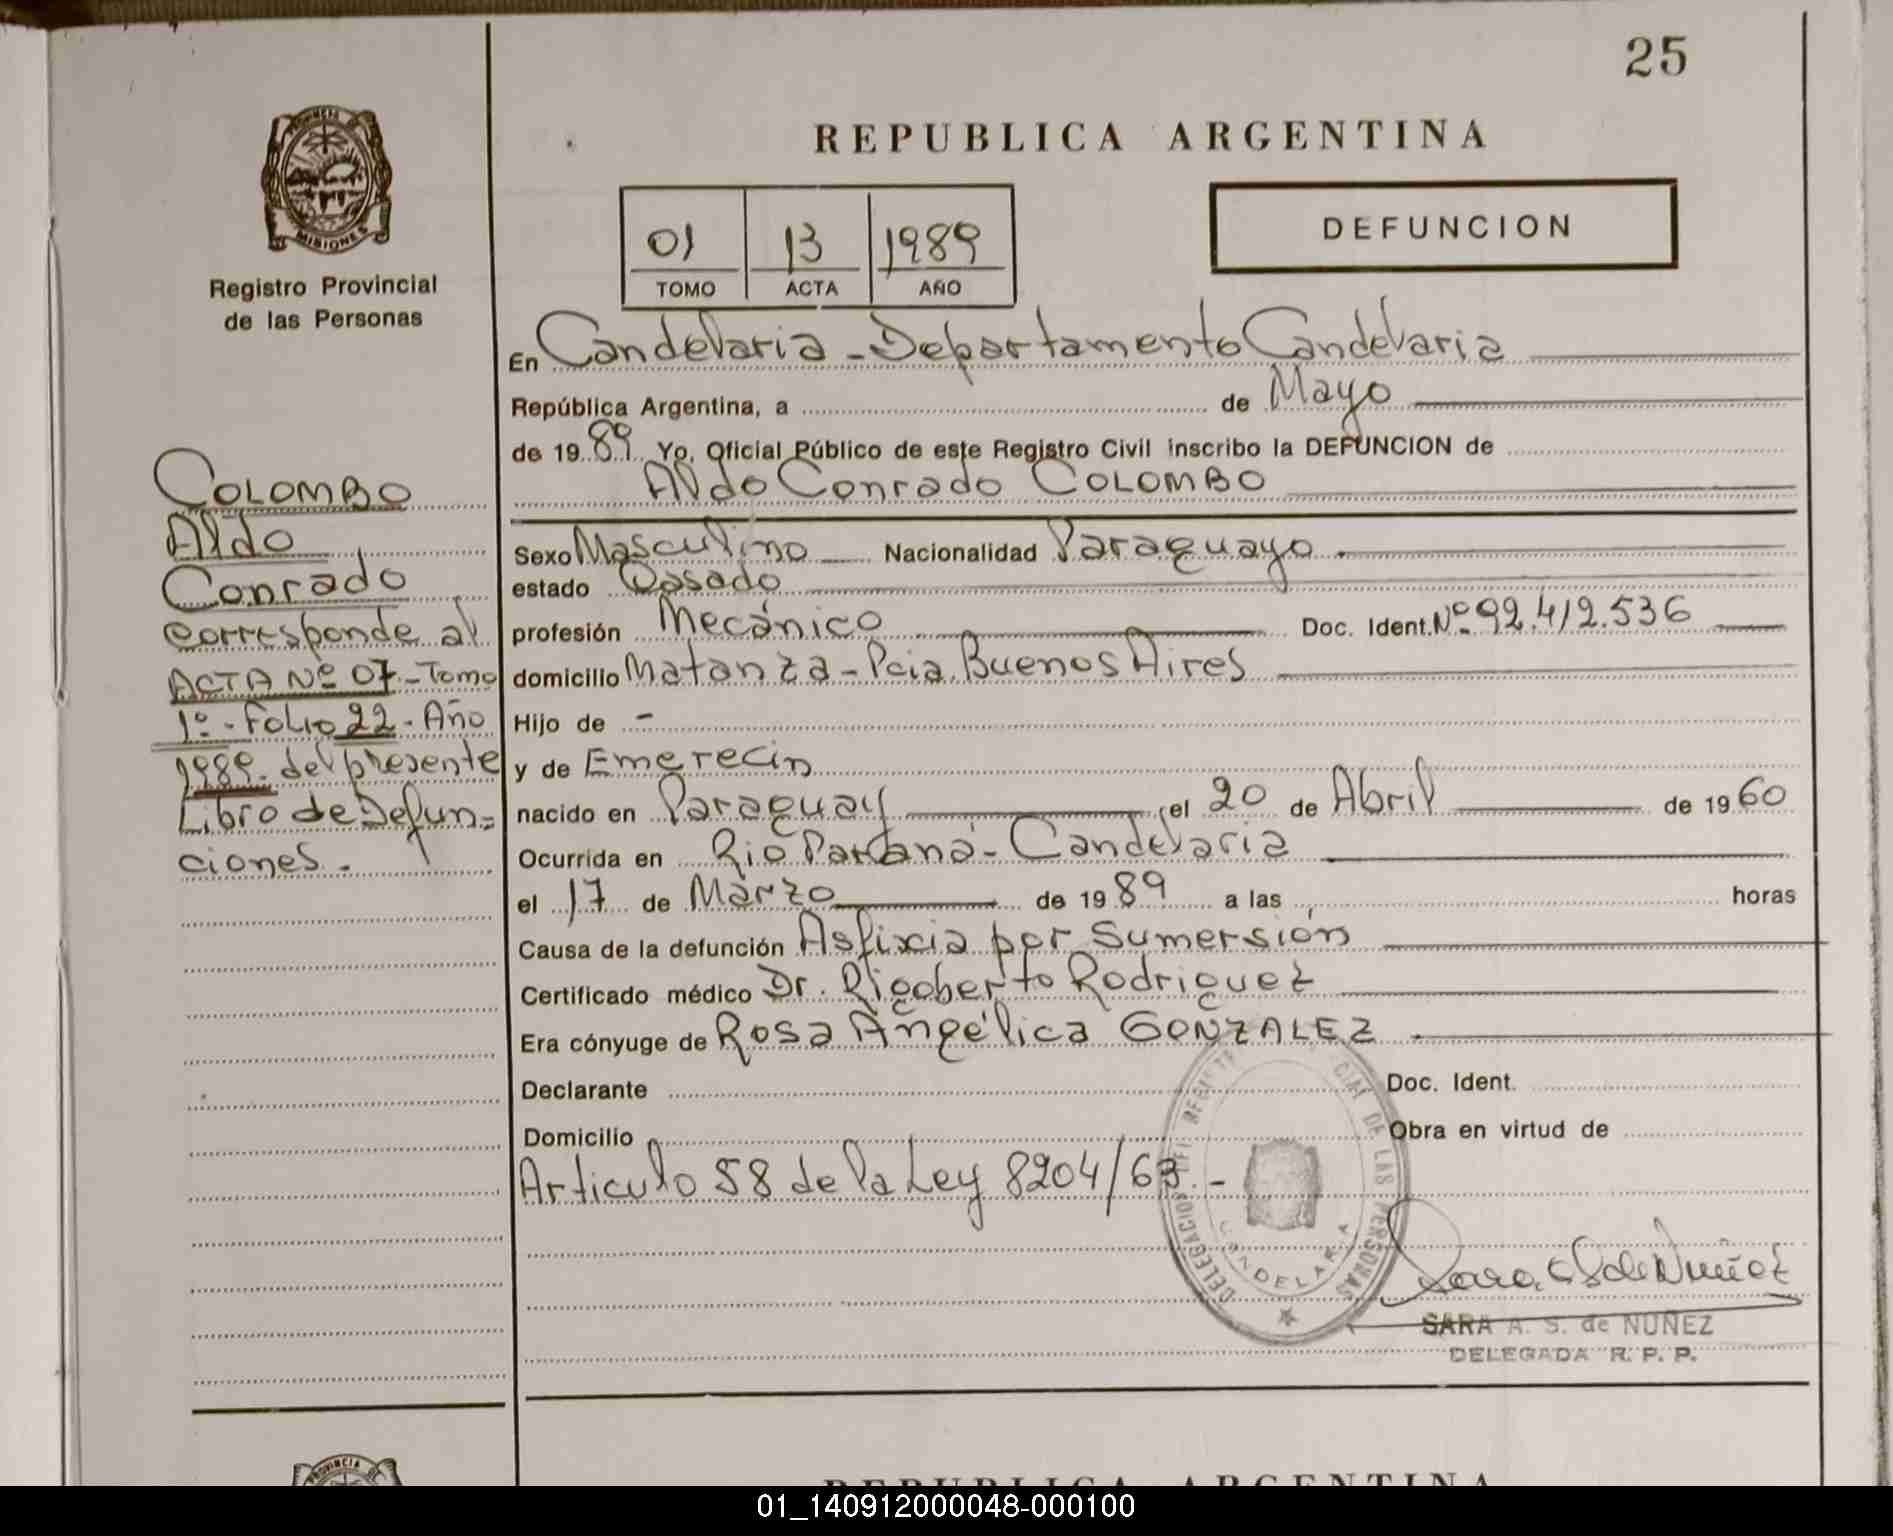 25
PROVINCIA DE
MISIONES
Registro Provincial
de las Personas
COLOMBO
Aldo
Conrado
corresponde al
ACTA Nº 07-Tomo
1º-Folio 22-Año
1989. del presente
Libro de Defun=
ciones.
REPUBLICA ARGENTINA
01 13 1989
TOMO ACTA AÑO
DEFUNCION
En Candelaria - Departamento Candelaria
República Argentina, a de Mayo
de 1989 Yo, Oficial Público de este Registro Civil inscribo la DEFUNCION de
Aldo Conrado COLOMBO
Sexo Masculino Nacionalidad Paraguayo
estado Casado
profesión Mecánico Doc. Ident. Nº 92.412.536
domicilio Matanza - Pcia. Buenos Aires
Hijo de -
y de Emerecin
nacido en Paraguay el 20 de Abril de 1960
Ocurrida en Rio Paraná - Candelaria
el 17 de Marzo de 1989 a las horas
Causa de la defunción Asfixia por Sumersión
Certificado médico Dr. Rigoberto Rodriguez
Era cónyuge de Rosa Angélica GONZALEZ
Declarante Doc. Ident.
Domicilio Obra en virtud de
Articulo 58 de la Ley 8204/63.-
DE LAS PERSONAS
CANDELARIA
SARA A. S. de NUÑEZ
DELEGADA R. P. P.
PROVINCIA DE
REPUBLICA ARGENTINA
01_140912000048-000100